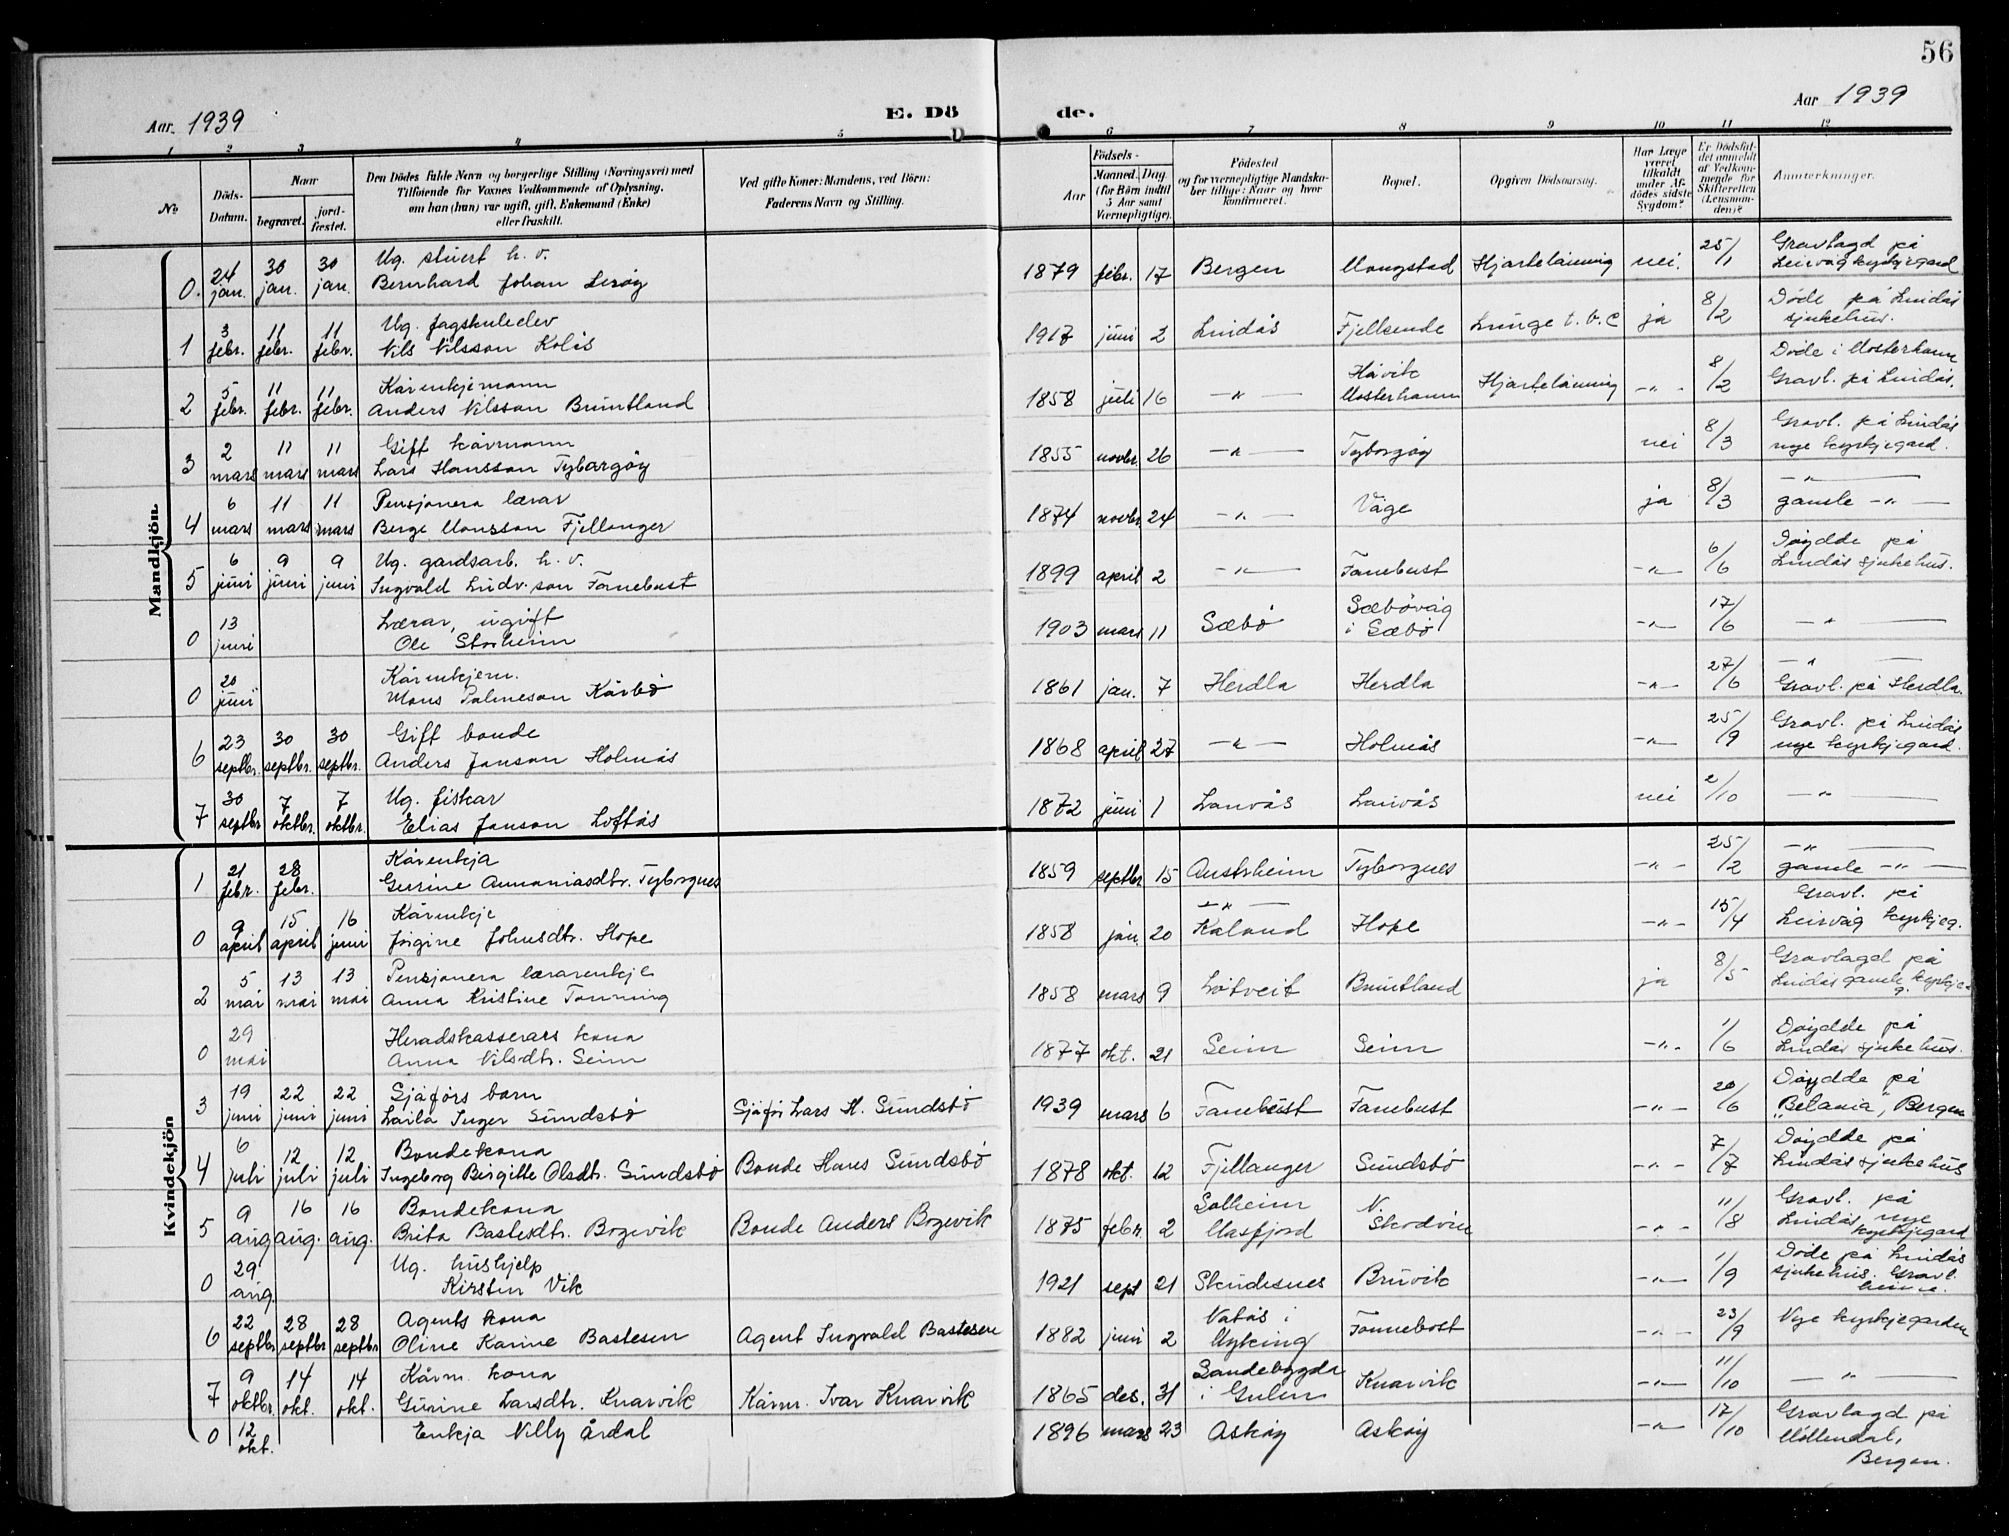 56
Aar. 1939
E. Dö
de.
Aar 1939
1 2 3 4 5 6 7 8 9 10 11 12
№
Döds-
Datum.
Naar
begravet.
jord-
fæstet.
Den Dödes fulde Navn og borgerlige Stilling (Næringsvei) med
Tilföiende for Voxnes Vedkommende af Oplysning,
om han (hun) var ugift, gift, Enkemand (Enke)
eller fraskilt.
Ved gifte Koner: Mandens, ved Börn:
Faderens Navn og Stilling.
Födsels-
Aar
Maaned. Dag
(for Börn indtil
5 Aar samt
Værnepligtige).
Födested
og for værnepligtige Mandska-
ber tillige: Naar og hvor
konfirmeret.
Bopæl.
Opgiven Dödsaarsag.
Har Læge
været
tilkaldt
under Af-
dödes sidste
Sygdom?
Er Dödsfal-
det anmeldt
af Vedkom-
mende for
Skifteretten
(Lensman-
den)?
Anmærkninger.
Mandkjön.
0. 24 jan. 30 jan. 30 jan. Ug. stuert h. v.
Bernhard Johan Lerøy 1879 febr. 17 Bergen Mongstad Hjartelåming nei. 25/1 Gravlagd på
Leirvåg kyrkjegard
1 3 febr. 11 febr. 11 febr. Ug. fagskuleelev
Nils Nilsson Kolås 1917 juni 2 Lindås Fjellsende Lunge t.b.c ja 8/2 Døde på Lindås
sjukehus.
2 5 febr. 11 febr. 11 febr. Kårenkjemann
Anders Nilsson Bruntland 1858 juli 16 -"- Håvik
Mosterhamn Hjartelåming -"- 8/2 Døde i Mosterhamn
Gravl. på Lindås.
3 2 mars 11 mars 11 mars Gift kårmann
Lars Hansson Tyborgøy 1855 novbr. 26 -"- Tyborgøy nei 8/3 Gravl. på Lindås
nye kyrkjegard.
4 6 mars 11 mars 11 mars Pensjonera lærar
Berge Monsson Fjellanger 1874 novbr. 24 -"- Våge ja 8/3 -"-
gamle -"-
5 6 juni 9 juni 9 juni Ug. gardsarb. h. v.
Ingvald Ludv.son Fanebust 1899 april 2 -"- Fanebust -"- 6/6 Døydde på
Lindås sjukehus.
0 13 juni Lærar, ugift
Ole Storheim 1903 mars 11 Sæbø Sæbøvåg
i Sæbø -"- 17/6 -"-
0 20 juni Kårenkjem.
Mons Palmeson Kårbø 1861 jan. 7 Herdla Herdla -"- 27/6 -"-
Gravl. på Herdla.
6 23 septbr. 30 septbr. 30 septbr. Gift bonde
Anders Jonson Holmås 1868 april 27 -"- Holmås -"- 25/9 Gravl. på Lindås
nye kyrkjegard.
7 30 septbr 7 oktbr. 7 oktbr. Ug. fiskar
Elias Jonson Loftås 1872 juni 1 Lauvås Lauvås nei 2/10 -"-
Kvindekjön
1 21 febr. 28 febr. Kårenkja
Gurine Annaniasdtr. Tyborgnes 1859 septbr 15 Austrheim Tyborgnes -"- 25/2 -"-
gamle -"-
0 9 april 15 april 16 juni Kårenkje
Jørgine Johnsdtr. Hope 1858 jan. 20 -"-
Kaland Hope -"- 15/4 Gravl. på
Leirvåg kyrkjeg.
2 5 mai 13 mai 13 mai Pensjonera lærarenkje
Anna Kristine Tonning 1858 mars 9 Løtveit Bruntland ja 8/5 Gravlagd på
Lindås gamle kyrkje-
g.
0 29 mai Heradskasserars kona
Anna Nilsdtr. Seim 1877 okt. 21 Seim Seim -"- 1/6 Døydde på
Lindås sjukehus.
3 19 juni 22 juni 22 juni Sjåførs barn
Laila Inger Sundsbø Sjåfør Lars H. Sundsbø 1939 mars 6 Fanebust Fanebust -"- 20/6 Døydde på
"Betania", Bergen
4 6 juli 12 juli 12 juli Bondekona
Ingeborg Birgitte Olsdtr. Sundsbø Bonde Hans Sundsbø 1878 okt. 12 Fjellanger Sundsbø -"- 7/7 Døydde på
Lindås sjukehus
5 9 aug 16 aug. 16 aug. Bondekona
Brita Bastesdtr. Bogevik Bonde Anders Bogevik 1875 febr. 2 Solheim
Masfjord N.
Skodvin -"- 11/8 Gravl. på
Lindås nye
kyrkjegard
0 29 aug. Ug. hushjelp
Kirsten Vik 1921 sept 21 Skudesnes Bruvik -"- 1/9 Døde på Lindås
sjukehus. Gravl.
heime.
6 22 septbr 28 septbr 28 septbr Agents kona
Oline Karine Bastesen Agent Ingvald Bastesen 1882 juni 2 Natås i
Myking Fonnebost -"- 23/9 Nye kyrkjegarden
7 9 oktbr. 14 okt. 14 okt. Kårm. kona
Gurine Larsdtr. Knarvik Kårm. Ivar Knarvik 1865 des. 31 Sandebygda
i Gulen Knarvik -"- 11/10 -"-
0 12 okt. Enkja Nilly Årdal 1896 mars 23 Askøy Askøy -"- 17/10 Gravlagd på
Møllendal,
Bergen.